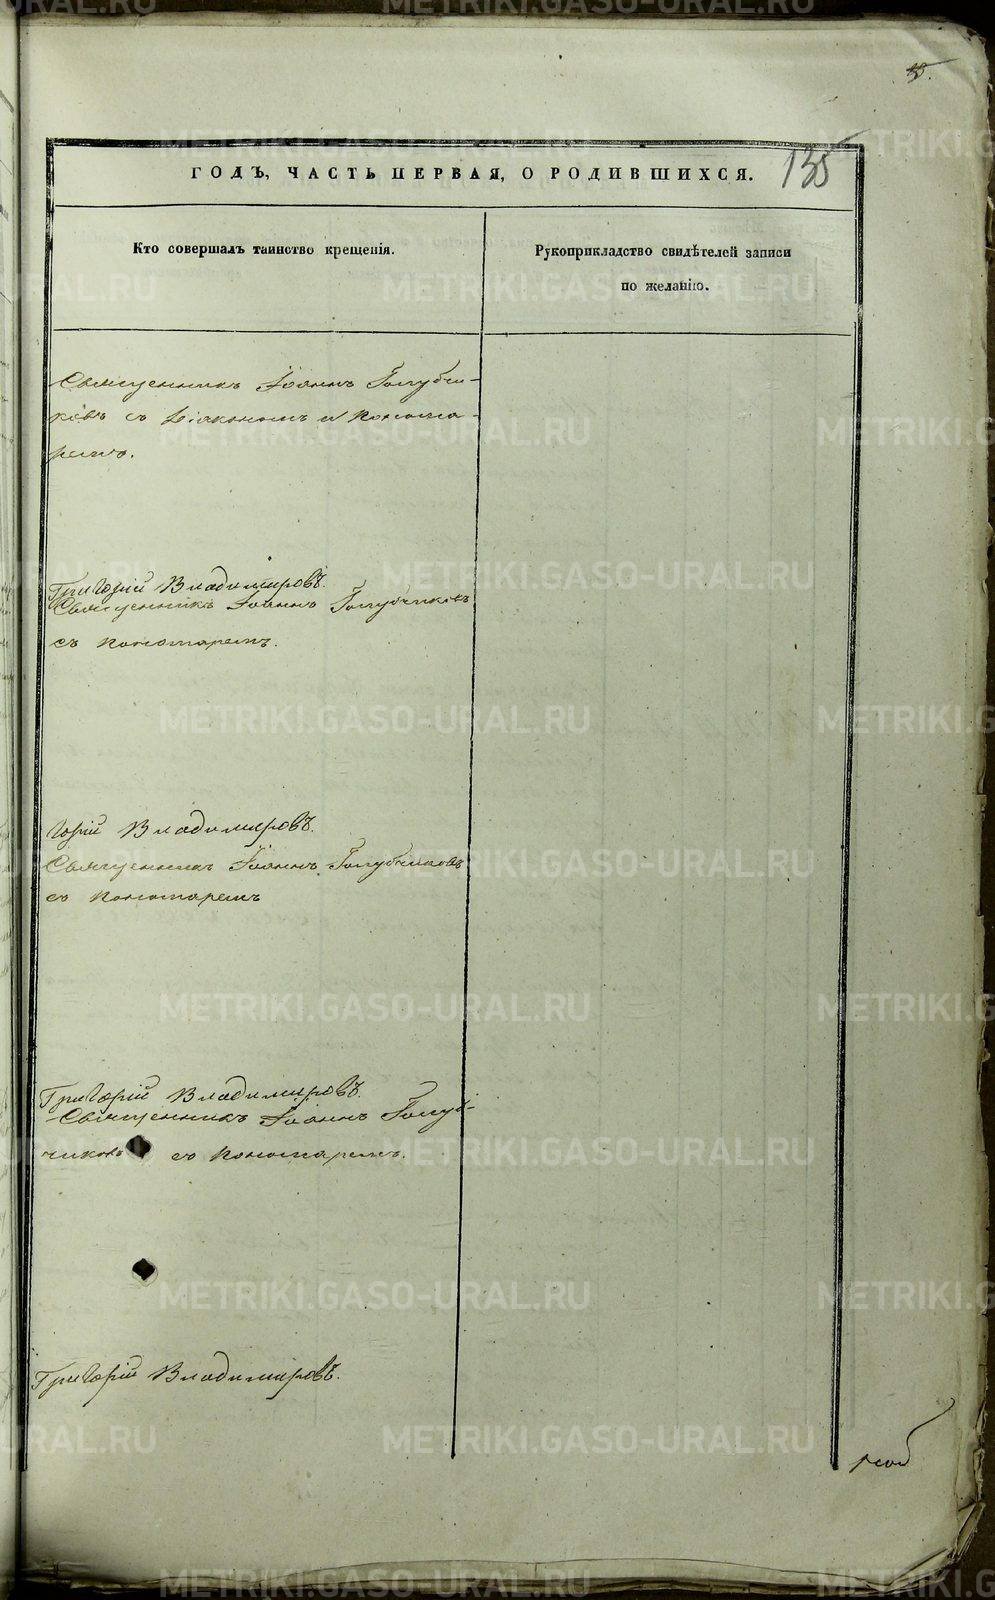 135
ГОДЪ, ЧАСТЬ ПЕРВАЯ, О РОДИВШИХСЯ.
Кто совершалъ таинство крещенія.
Рукоприкладство свидѣтелей записи
по желанію.
Священникъ Іоаннъ Голубчи-
ковъ съ Діакономъ и Понома-
ремъ.
Григорій Владимировъ.
Священникъ Іоаннъ Голубчиковъ
съ пономаремъ.
горій Владимировъ.
Священникъ Іоаннъ Голубчиковъ
съ пономаремъ
Григорій Владимировъ.
Священникъ Іоаннъ Голуб-
чиковъ съ пономаремъ.
Григорій Владимировъ.
METRIKI.GASO-URAL.RU